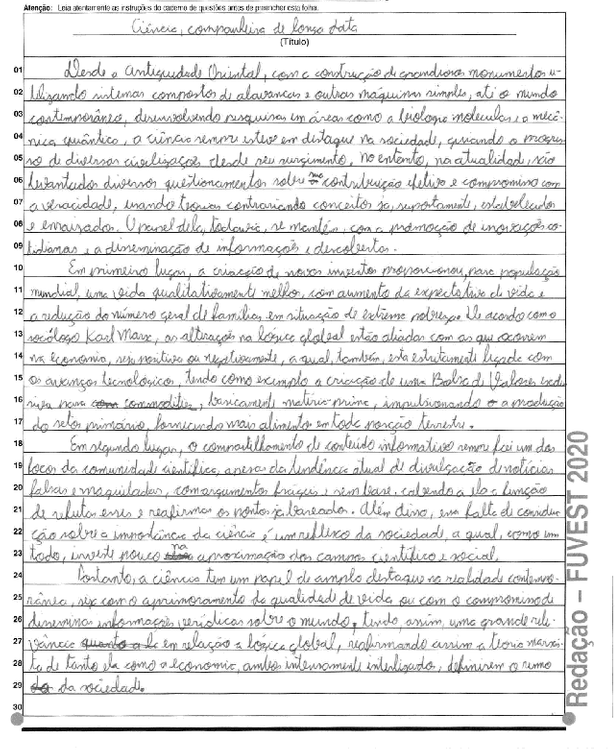 Atenção: Leia atentamente as instruções do caderno de questões antes de preencher esta folha.
Ciência, companheira de longa data
(Título)
01 Desde a Antiguidade Oriental, com a construção de grandiosos monumentos u-
02 tilizando sistemas compostos de alavancas e outras máquinas simples, até o mundo
03 contemporâneo, desenvolvendo pesquisas em áreas como a biologia molecular e a mecâ-
04 nica quântica, a ciência sempre esteve em destaque na sociedade, guiando o progres-
05 so de diversas civilizações desde seu surgimento. No entanto, na atualidade, são
06 levantados diversos questionamentos sobre sua contribuição efetiva e compromisso com
07 a veracidade, usando teorias contrariando conceitos já, supostamente, estabelecidos
08 e enraizados. O papel dela, todavia, se mantém, com a promoção de inovações co-
09 tidianas e a disseminação de informações e descobertas.
10 Em primeiro lugar, a criação de novos inventos proporcionou, para população
11 mundial, uma vida qualitativamente melhor, com aumento da expectativa de vida e
12 a redução do número geral de famílias em situação de extrema pobreza. De acordo com o
13 sociólogo Karl Marx, as alterações na lógica global estão aliadas com as que ocorrem
14 na economia, seja positiva ou negativamente, a qual, também, está estritamente ligada com
15 os avanços tecnológicos, tendo como exemplo a criação de uma Bolsa de Valores exclu-
16 siva para commodities, basicamente matéria-prima, impulsionando a produção
17 do setor primário, fornecendo mais alimento em toda porção terrestre.
18 Em segundo lugar, o compartilhamento de conteúdo informativo sempre foi um dos
19 focos da comunidade científica, apesar da tendência atual de divulgação de notícias
20 falsas e maquiladas, com argumentos frágeis e sem base, cabendo a ela a função
21 de refutar esses e reafirmar os pontos já baseados. Além disso, essa falta de considera-
22 ção sobre a importância da ciência é um reflexo da sociedade, a qual, como um
23 todo, investe pouco na aproximação dos campos científico e social.
24 Portanto, a ciência tem um papel de amplo destaque na realidade contempo-
25 rânea, seja com o aprimoramento da qualidade de vida ou com o compromisso de
26 disseminar informações verídicas sobre o mundo, tendo, assim, uma grande rele-
27 vância em relação a lógica global, reafirmando assim a teoria marxis-
28 ta de tanto ela como a economia, ambos intensamente interligados, definirem o rumo
29 da sociedade.
30
Redação – FUVEST 2020